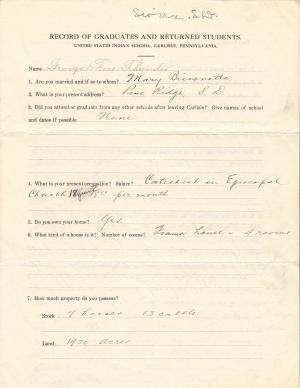 Sioux, S.D.
RECORD OF GRADUATES AND RETURNED STUDENTS.
UNITED STATES INDIAN SCHOOL, CARLISLE, PENNSYLVANIA.
Name George Fire Thunder
1. Are you married and if so to whom? Mary Bissonette
2. What is your present address? Pine Ridge, S. D.
3. Did you attend or graduate from any other schools after leaving Carlisle? Give names of school
and dates if possible. None
4. What is your present occupation? Salary? Catechist in Episcopal
Church per month
5. Do you own your home? Yes.
6. What kind of house is it? Number of rooms? Frame house - 4 rooms
7. How much property do you possess?
Stock 7 horses 13 cattle
Land 1920 acres